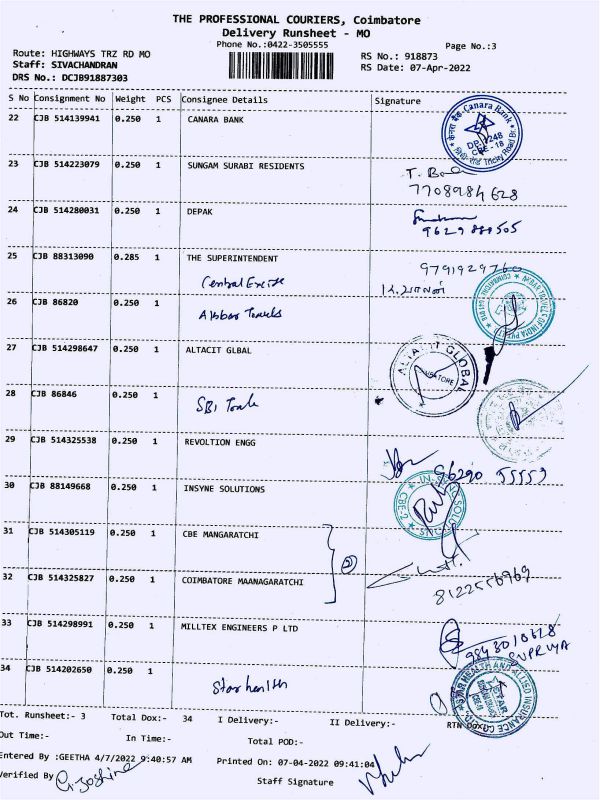 THE PROFESSIONAL COURIERS, Coimbatore
Delivery Runsheet - MO
Phone No.:0422-3505555
Page No.:3
Route: HIGHWAYS TRZ RD MO
RS No.: 918873
Staff: SIVACHANDRAN
RS Date: 07-Apr-2022
DRS No.: DCJB91887303
S No Consignment No Weight PCS Consignee Details Signature
22 CJB 514139941 0.250 1 CANARA BANK
Canara Bank
Tricky Road Br.
23 CJB 514223079 0.250 1 SUNGAM SURABI RESIDENTS
7708984628
24 CJB 514280031 0.250 1 DEPAK
25 CJB 88313090 0.285 1 THE SUPERINTENDENT
Central Excise
26 CJB 86820 0.250 1
Akbar Travels
27 CJB 514298647 0.250 1 ALTACIT GLBAL
ALTACIT GLOBAL
28 CJB 86846 0.250 1
SBI
29 CJB 514325538 0.250 1 REVOLTION ENGG
96290 55559
30 CJB 88149668 0.250 1 INSYNE SOLUTIONS
31 CJB 514305119 0.250 1 CBE MANGARATCHI
2
32 CJB 514325827 0.250 1 COIMBATORE MAANAGARATCHI
8122556969
33 CJB 514298991 0.250 1 MILLTEX ENGINEERS P LTD
SUPRIYA
34 CJB 514202650 0.250 1
Star health
STAR HEALTH AND ALLIED INSURANCE CO
Tot. Runsheet:- 3 Total Dox:- 34 I Delivery:- II Delivery:- RTN Dox:-
Out Time:- In Time:- Total POD:-
Entered By :GEETHA 4/7/2022 9:40:57 AM Printed On: 07-04-2022 09:41:04
Verified By
Staff Signature